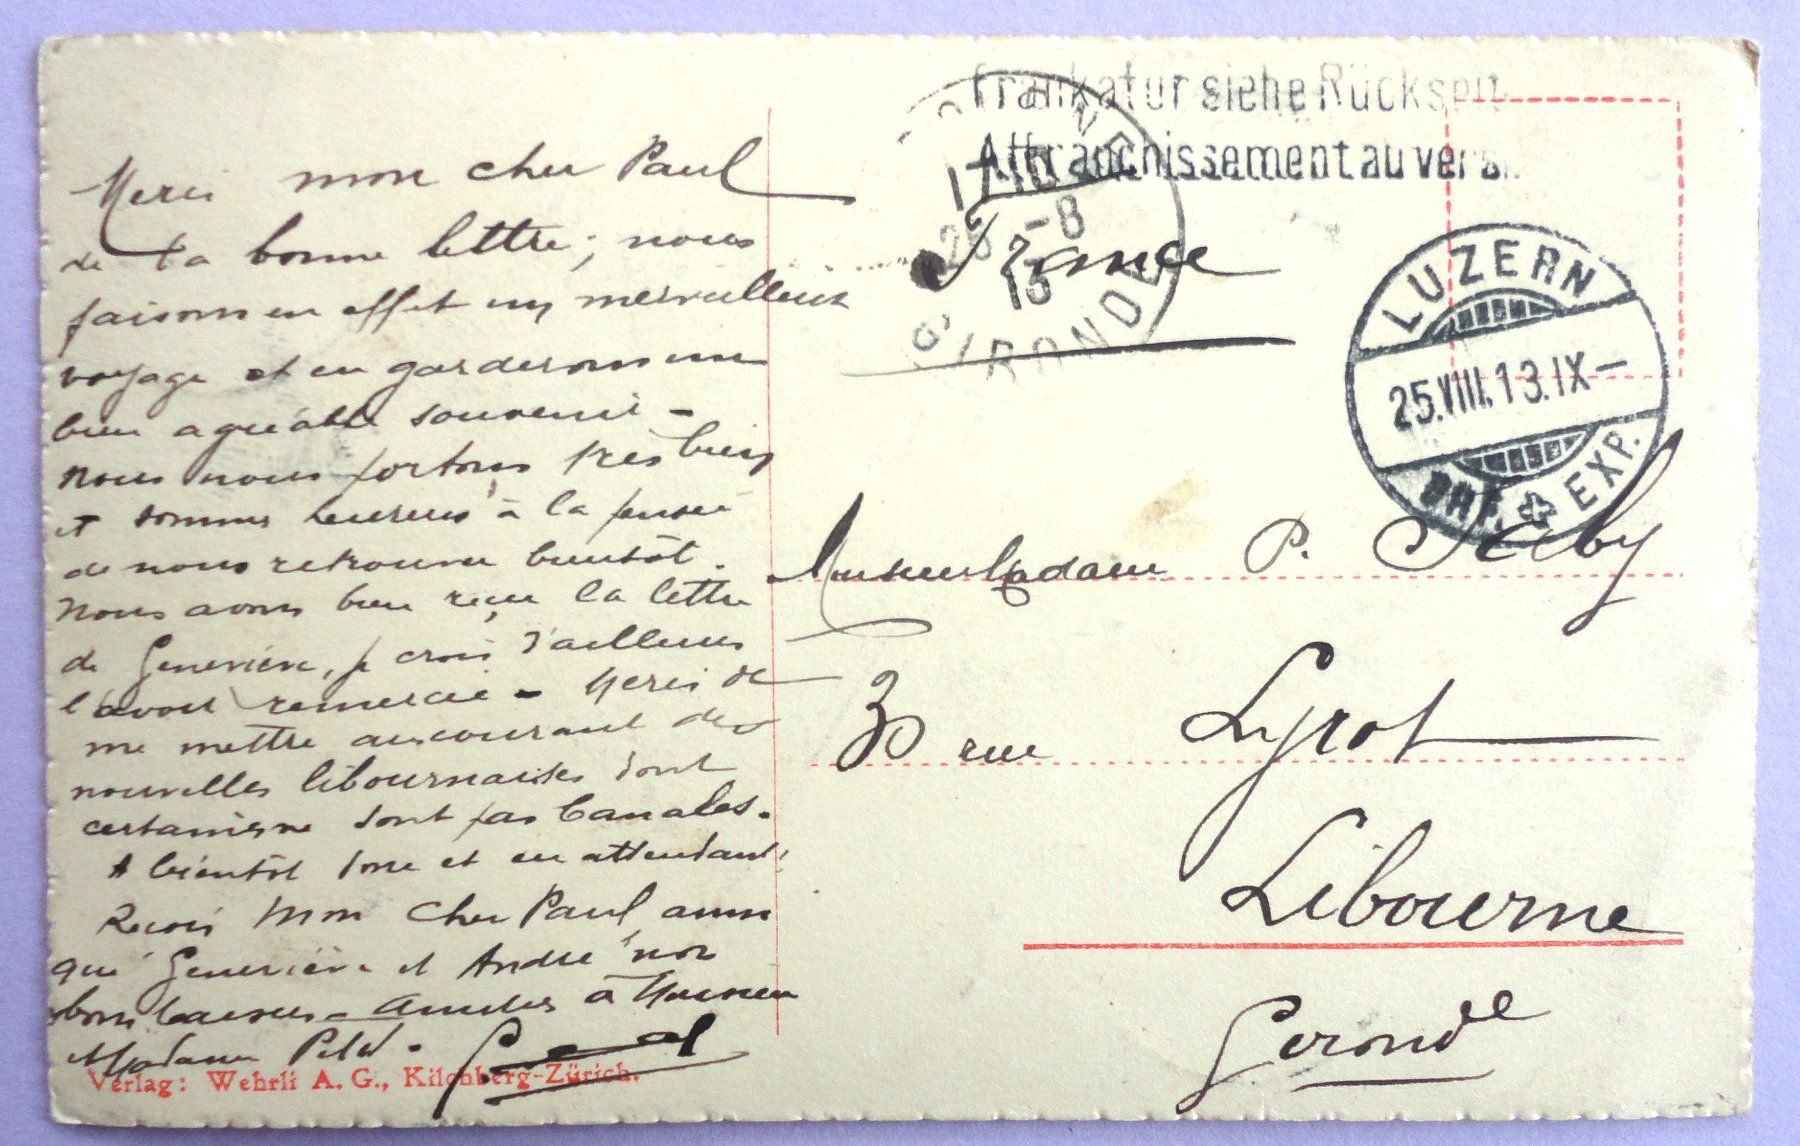 Merci mon cher Paul
de ta bonne lettre; nous
faisons en effet un merveilleux
voyage et en garderons un
bien agréable souvenir -
Nous nous portons très bien
et sommes heureux à la pensée
de nous retrouver bientôt.
Nous avons bien reçu la lettre
de Geneviève, je crois d'ailleurs
l'avoir remercié - Merci de
me mettre au courant des
nouvelles libournaises dont
certaines sont pas banales.
A bientôt donc et en attendant
Reçois mon cher Paul, ainsi
que Geneviève et André nos
bons baisers - Amitiés à Monsieur
et Madame
Verlag: Wehrli A. G., Kilchberg-Zürich.
Frankatur siehe Rückseit
Affranchissement au verso
17 10
25 -8
13
GIRONDE
France
LUZERN
25.VIII.13.IX-
BRF. EXP.
Monsieur Madame P.
3 rue
Libourne
Gironde